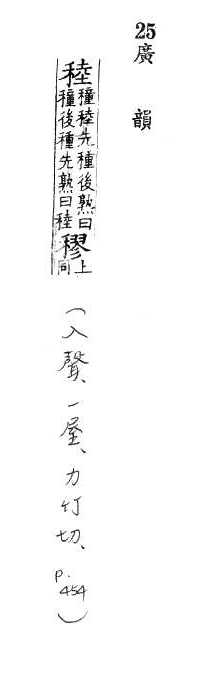 25 廣韻
稑 穜稑先種後熟曰
穜後種先熟曰稑 穋 上同
(入聲、一屋、力竹切、p.454)